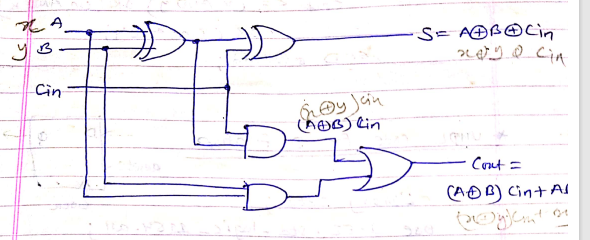 x A
y B
Cin
S = A⊕B⊕Cin
x⊕y⊕Cin
(x⊕y)Cin
(A⊕B) Cin
Cout =
(A⊕B) Cin + A
(x⊕y)